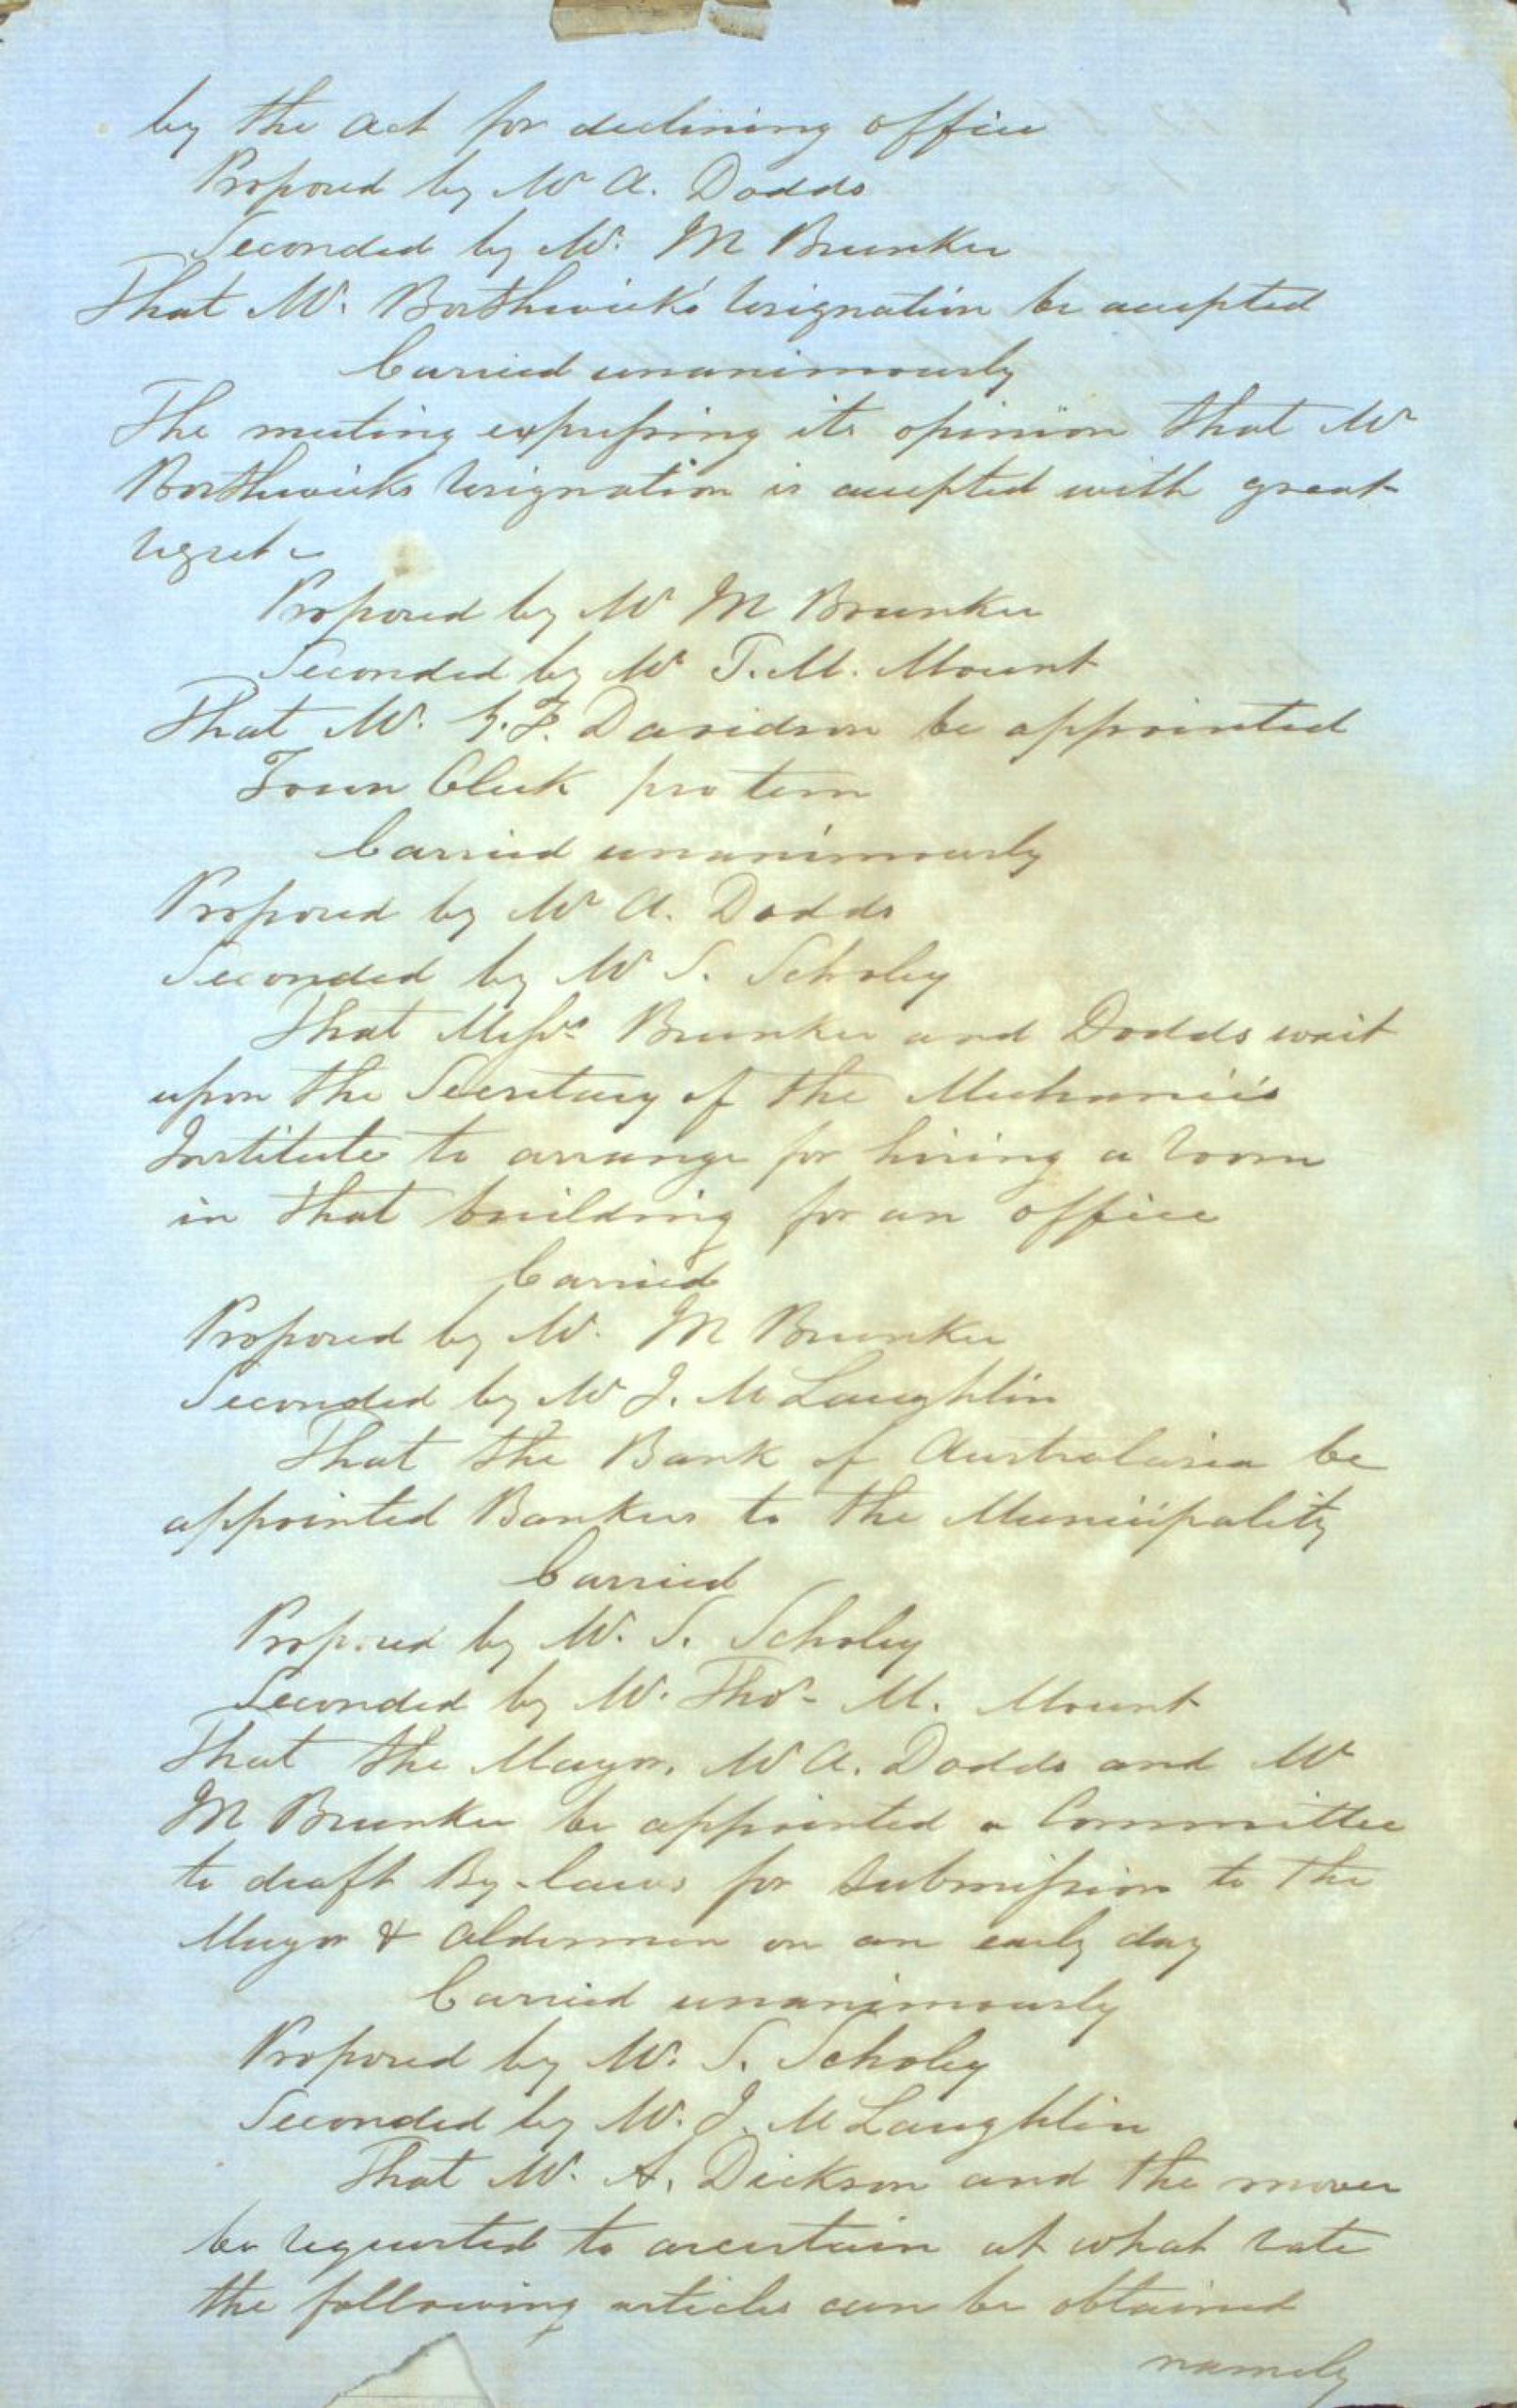 by the Act for declining office
Proposed by Mr A. Dodds
Seconded by Mr. M Brunker
That Mr. Borthwick's resignation be accepted
Carried unanimously
The meeting expressing its opinion that Mr
Borthwicks resignation is accepted with great
regret
Proposed by Mr M Brunker
Seconded by Mr T. M. Mount
That Mr. G. F. Davidson be appointed
Town Clerk pro tem
Carried unanimously
Proposed by Mr A. Dodds
Seconded by Mr S. Scholey
That Messrs Brunker and Dodds wait
upon the Secretary of the Mechanic's
Institute to arrange for hiring a room
in that building for an office
Carried
Proposed by Mr. M Brunker
Seconded by Mr J. McLaughlin
That the Bank of Australasia be
appointed Bankers to the Municipality
Carried
Proposed by Mr. S. Scholey
Seconded by Mr. Thos. M. Mount
That the Mayor, Mr A. Dodds and Mr
M Brunker be appointed a Committee
to draft By-laws for submission to the
Mayor & Aldermen on an early day
Carried unanimously
Proposed by Mr. S. Scholey
Seconded by Mr. J. McLaughlin
That Mr. A. Dickson and the mover
be requested to ascertain at what rate
the following articles can be obtained
namely